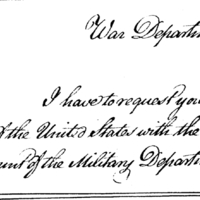 War Departm
I have to request you
of the United States with the
unt of the Military Departm